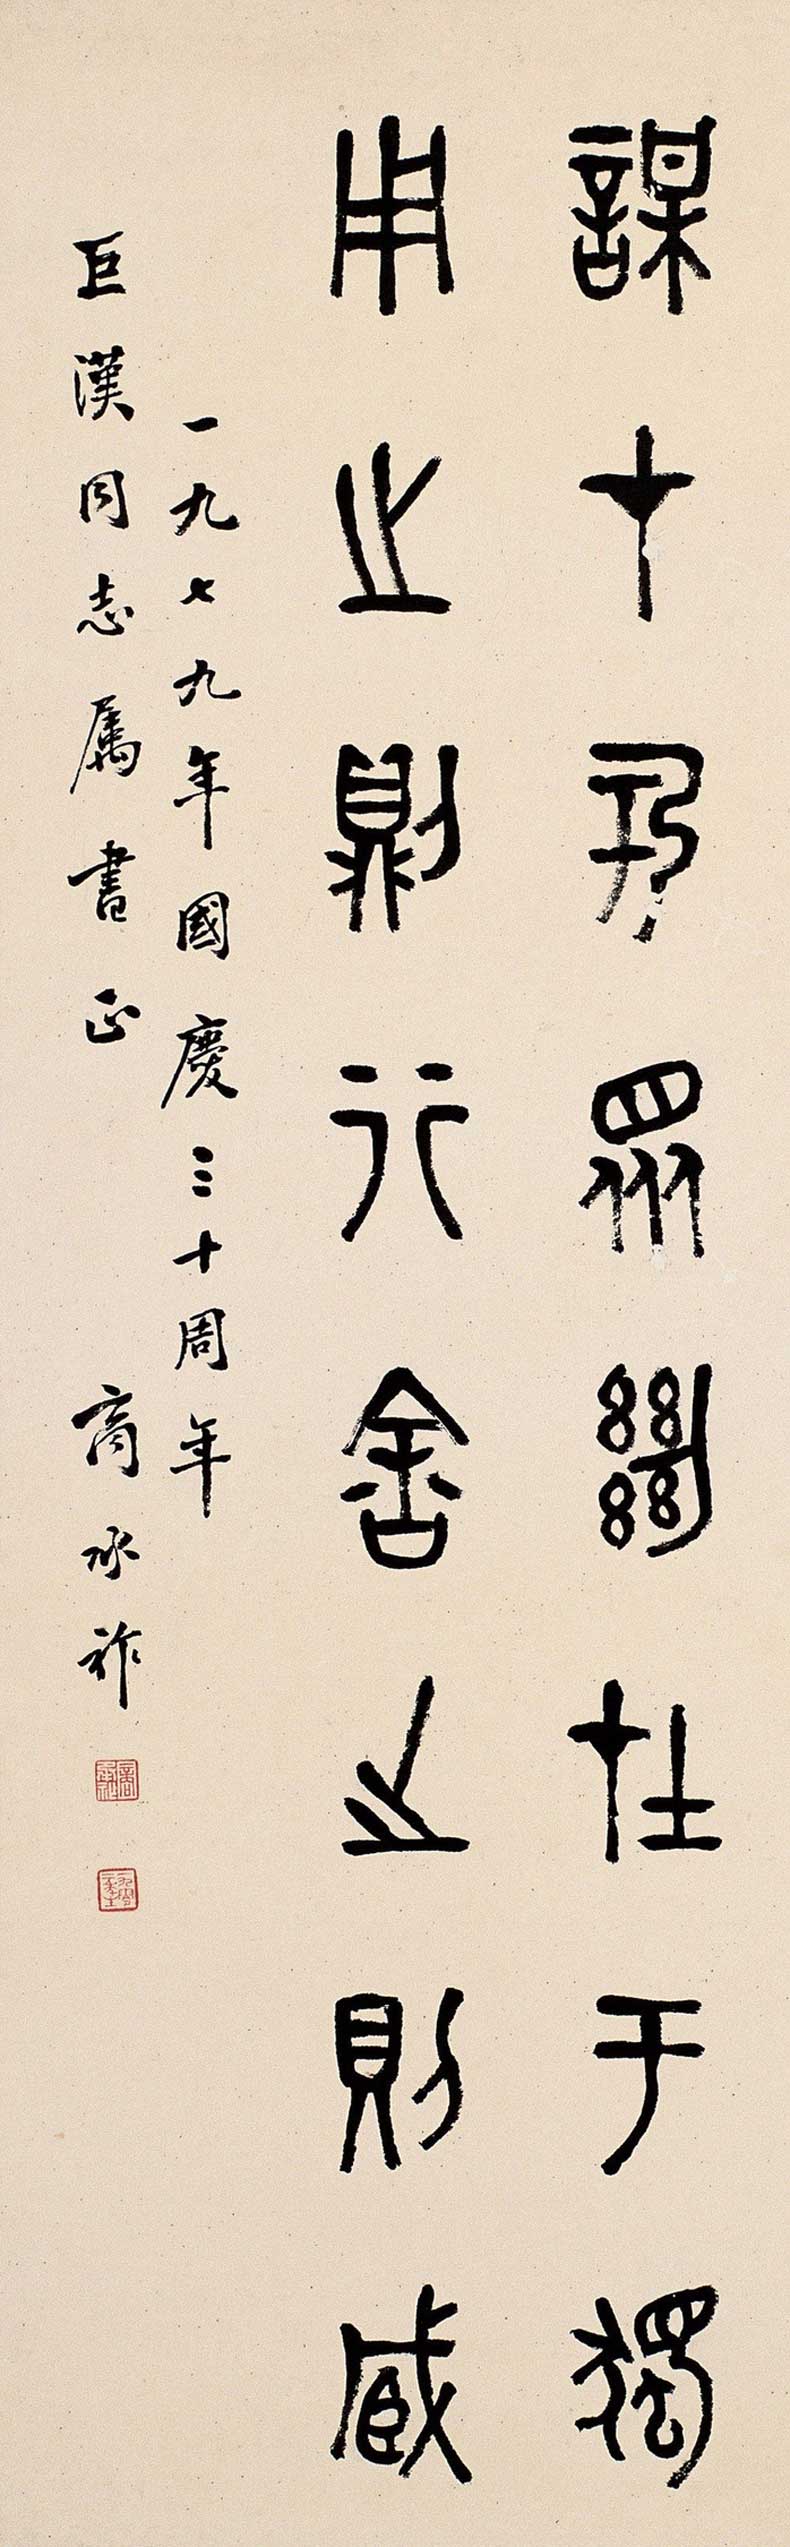 謀在于眾斷在于獨
用之則行舍之則臧
一九七九年國慶三十周年
巨漢同志属書正 商承祚